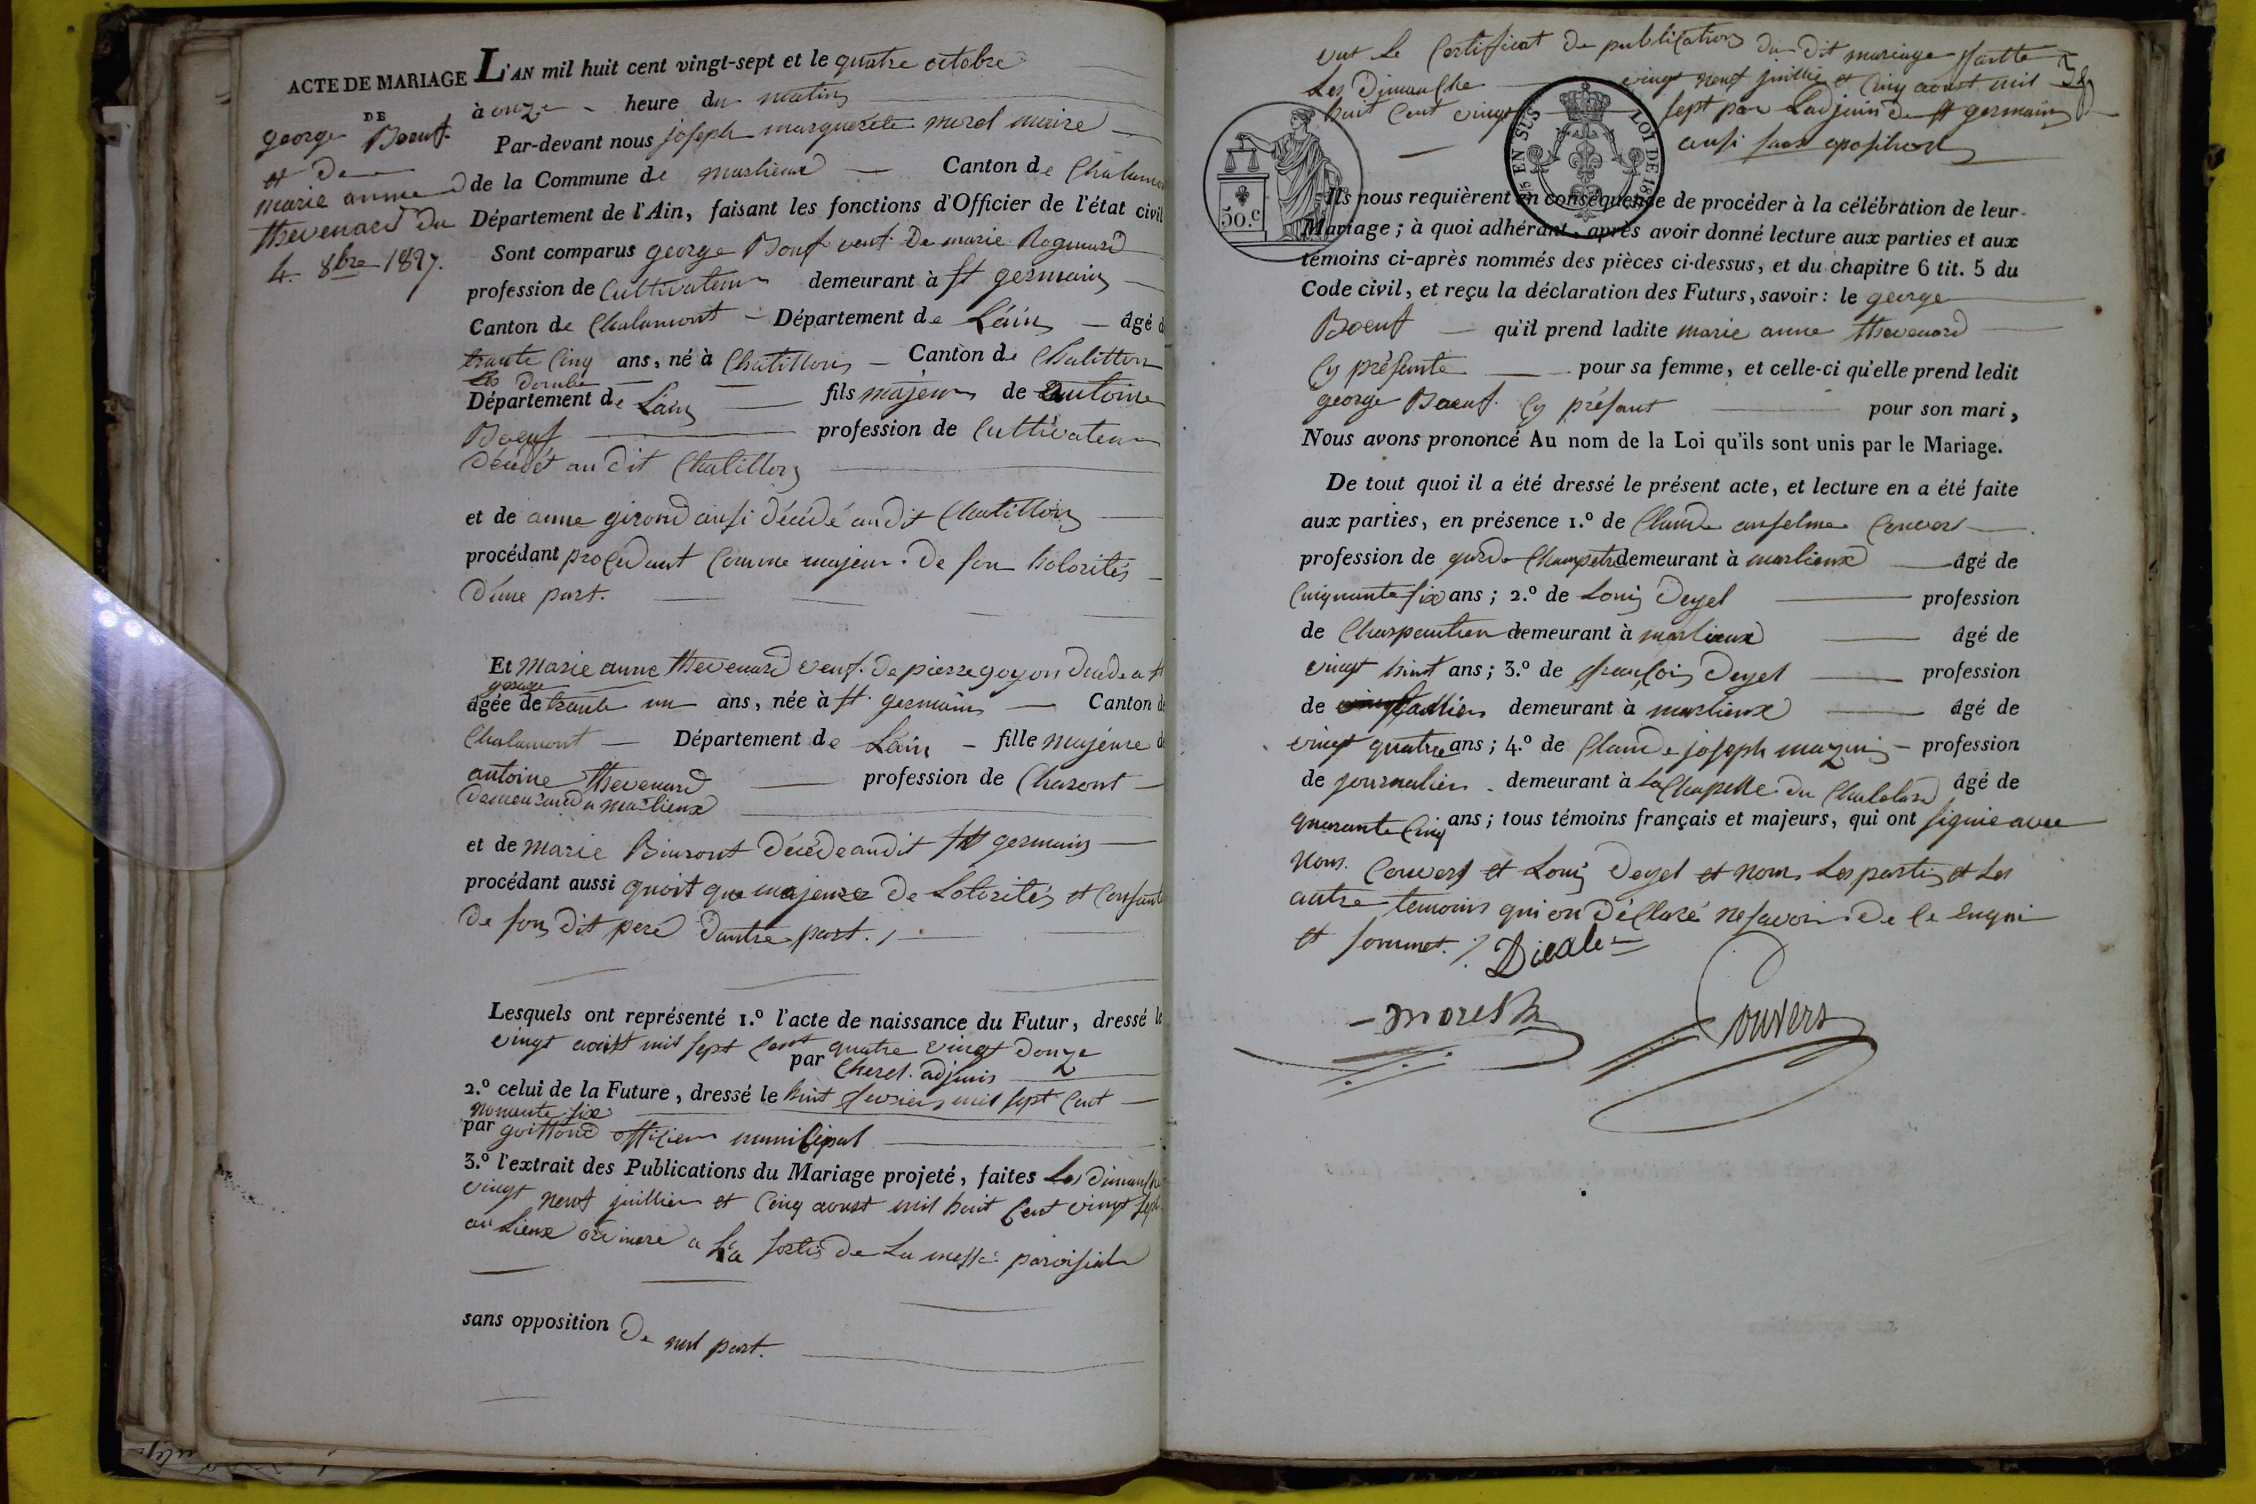 ACTE DE MARIAGE
DE
george Boeuf
et de
marie anne
thevenard du
4. 8bre 1827.
L'AN mil huit cent vingt-sept et le quatre octobre
à onze heure du matin
Par-devant nous joseph marguerite morel maire
de la Commune de marlieux Canton de Chalamont
Département de l'Ain, faisant les fonctions d'Officier de l'état civil
Sont comparus george Bouf veuf de marie Rognard
profession de Cultivateur demeurant à st germain
Canton de Chalamont Département de Lain âgé de
trante Cinq ans, né à Chatillon Canton de Chatillon
les Dombe
Département de Lain fils majeur de antoine
Boeuf profession de Cultivateur
décédét au dit Chatillon
et de anne girond ausi décédé au dit Chatillon
procédant procedant comme majeur de son hotorités
d'une part.
Et marie anne thevenard veuf de pierre goyon decede a st
germain
âgée de trante un ans, née à st germain Canton de
Chalamont Département de Lain fille majeure de
antoine thevenard profession de Charont
demeurand a marlieux
et de marie décédé au dit st germain
procédant aussi quoit que majeure de Lotorités et Consante
de son dit pere d'autre part. /
Lesquels ont représenté 1.º l'acte de naissance du Futur, dressé le
vingt aoust mil sept Cent quatre vingt douze
par Cherel adjoint
2.º celui de la Future, dressé le huit fevrier mil sept Cent
nonente six
par goiffond officier municipal
3.º l'extrait des Publications du Mariage projeté, faites les dimanche
vingt neuf juillier et Cinq aoust mil huit Cent vingt sept
au Lieux ordinere a la sortis de La messe paroisial
sans opposition de nul part.
vut Le Certificat de publication du dit mariage faitte 38
Les Dimanche vingt neuf juillié et Cinq aoust mil
huit Cent vingt sept par Ladjoin de st germain
ausi sans oposition
50.c
25 EN SUS LOI DE 18
Ils nous requièrent en conséquence de procéder à la célébration de leur
Mariage ; à quoi adhérant, après avoir donné lecture aux parties et aux
témoins ci-après nommés des pièces ci-dessus, et du chapitre 6 tit. 5 du
Code civil, et reçu la déclaration des Futurs, savoir : le george
Boeuf qu'il prend ladite marie anne thevenard
Cy présente pour sa femme, et celle-ci qu'elle prend ledit
george Boeuf Cy présant pour son mari,
Nous avons prononcé Au nom de la Loi qu'ils sont unis par le Mariage.
De tout quoi il a été dressé le présent acte, et lecture en a été faite
aux parties, en présence 1.º de Claude anselme Couvers
profession de garde Champetre demeurant à marlieux âgé de
Cinquante six ans ; 2.º de Louis Deyel profession
de Charpentier demeurant à marlieux âgé de
vingt huit ans ; 3.º de françois Deyel profession
de demeurant à marlieux âgé de
vingt quatre ans ; 4.º de Claude joseph mazuis profession
de journalier demeurant à La Chapelle du Chatelard âgé de
quarante Cinq ans ; tous témoins français et majeurs, qui ont signié avec
nous. Couvers et Louis Deyel et nom Les partis et Les
autre temoins qui on déClaré ne savoir de Ce enqui
et sommet. /.
morel
Couvers